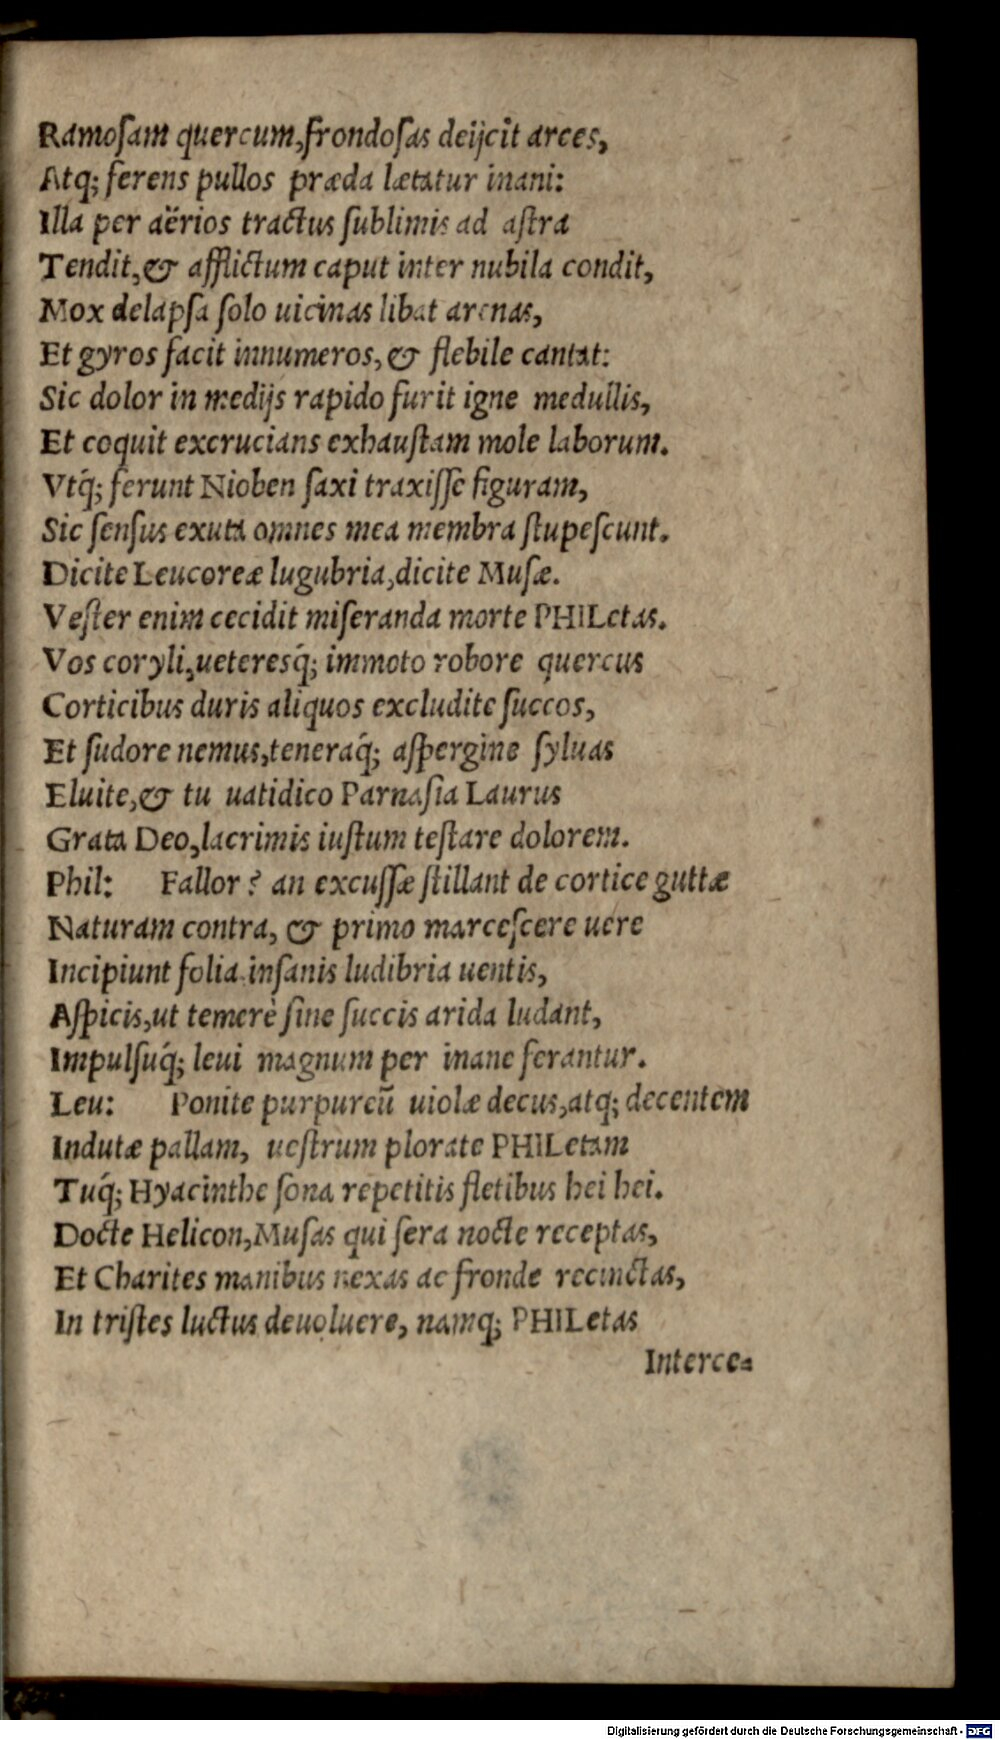 Ramoſam quercum, frondoſas deijcit arces,
Atq; ferens pullos præda lætatur inani:
Illa per aërios tractus ſublimis ad aſtra
Tendit, & afflictum caput inter nubila condit,
Mox delapſa ſolo uicinas libat arenas,
Et gyros facit innumeros, & flebile cantat:
Sic dolor in medijs rapido furit igne medullis,
Et coquit excrucians exhauſtam mole laborum.
Vtq́; ferunt Nioben ſaxi traxiſſe figuram,
Sic ſenſus exuta omnes mea membra ſtupeſcunt.
Dicite Leucoreæ lugubria, dicite Muſæ.
Veſter enim cecidit miſeranda morte PHILetas.
Vos coryli, ueteresq́; immoto robore quercus
Corticibus duris aliquos excludite ſuccos,
Et ſudore nemus, teneraq́; aſpergine ſyluas
Eluite, & tu uatidico Parnaſia Laurus
Grata Deo, lacrimis iuſtum teſtare dolorem.
Phil: Fallor? an excuſſæ ſtillant de cortice guttæ
Naturam contra, & primo marceſcere uere
Incipiunt folia inſanis ludibria uentis,
Aſpicis, ut temerè ſine ſuccis arida ludant,
Impulſuq́; leui magnum per inane ferantur.
Leu: Ponite purpureũ uiolæ decus, atq; decentem
Indutæ pallam, ueſtrum plorate PHILetam
Tuq́; Hyacinthe ſona repetitis fletibus hei hei.
Docte Helicon, Muſas qui ſera nocte receptas,
Et Charites manibus nexas ac fronde recinctas,
In triſtes luctus deuoluere, namq; PHILetas
Interce-
Digitalisierung gefördert durch die Deutsche Forschungsgemeinschaft - DFG